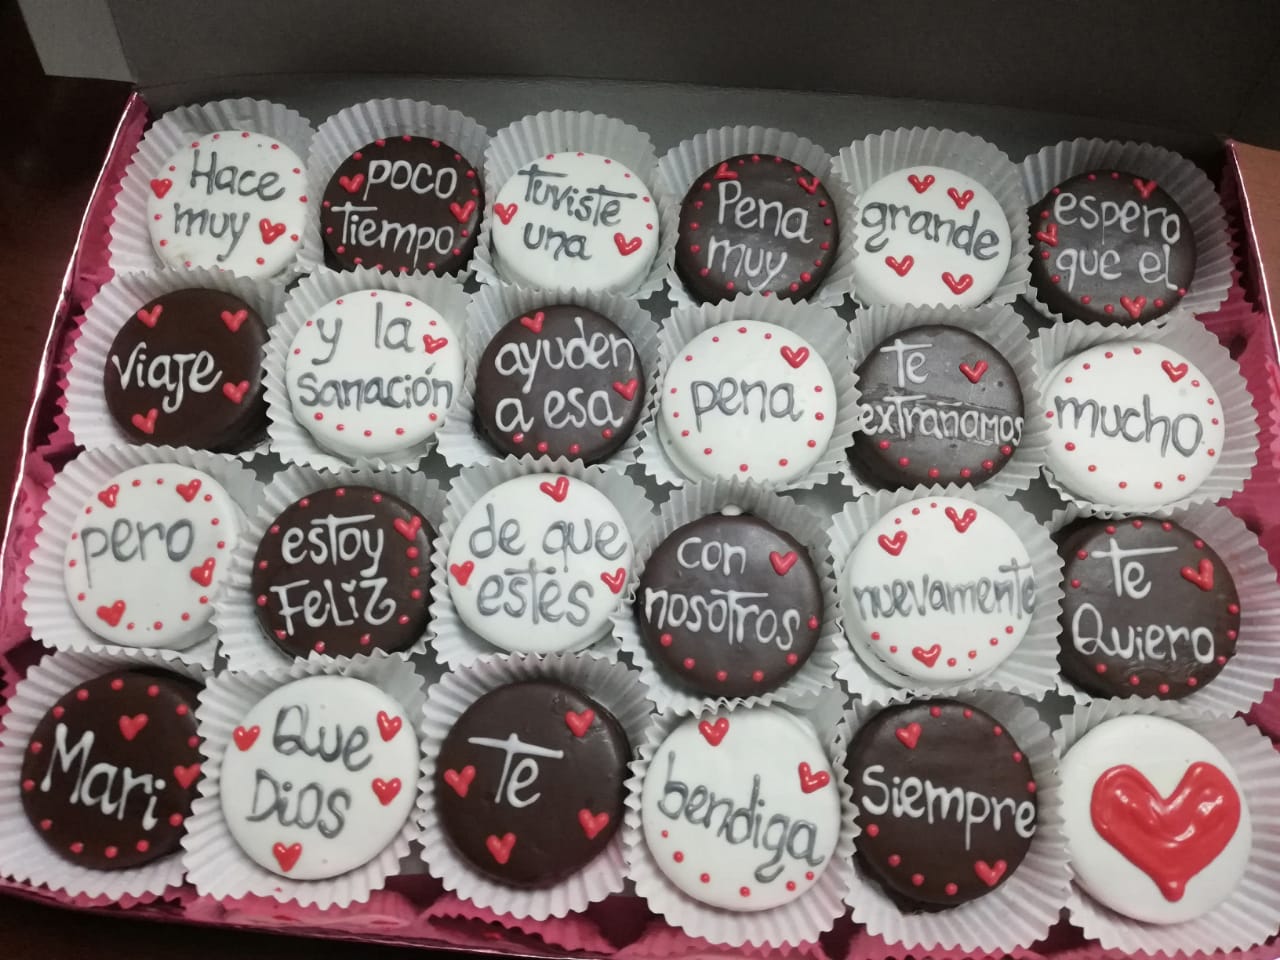 Hace
muy
poco
Tiempo
Tuviste
una
Pena
muy
grande
espero
que el
viaje
y la
sanación
ayuden
a esa
pena
Te
extrañamos
mucho
pero
estoy
Feliz
de que
estés
con
nosotros
nuevamente
Te
Quiero
Mari
Que
Dios
Te
bendiga
Siempre